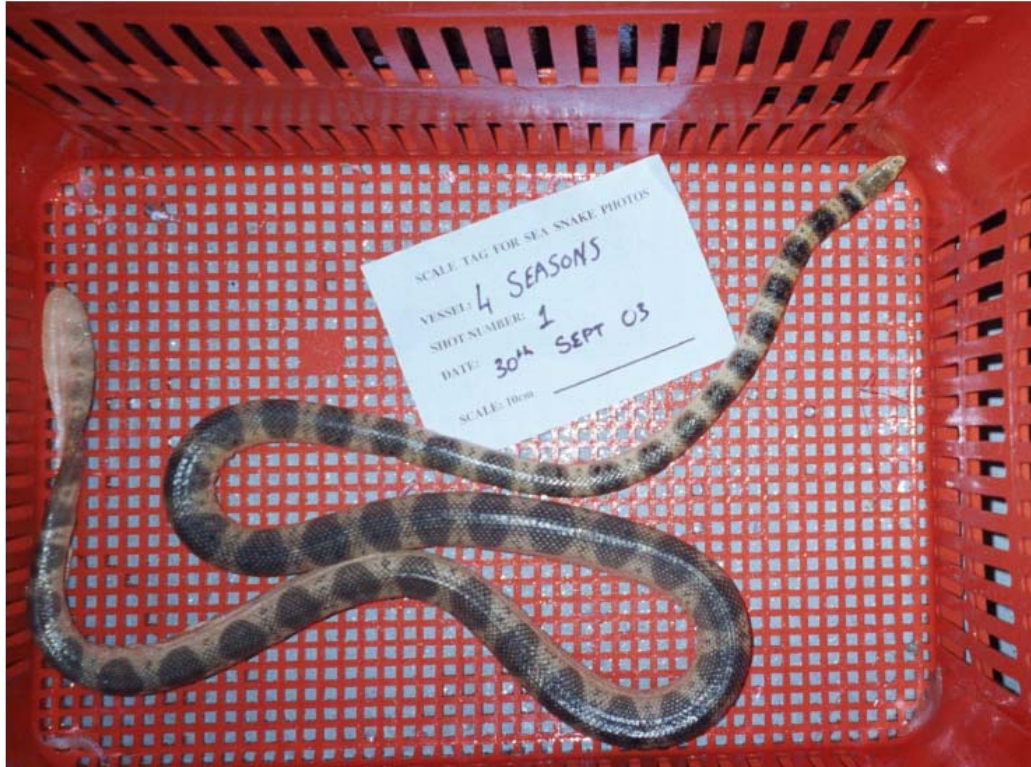 SCALE TAG FOR SEA SNAKE PHOTOS
VESSEL: 4 SEASONS
SHOT NUMBER: 1
DATE: 30th SEPT 03
SCALE: 10cm